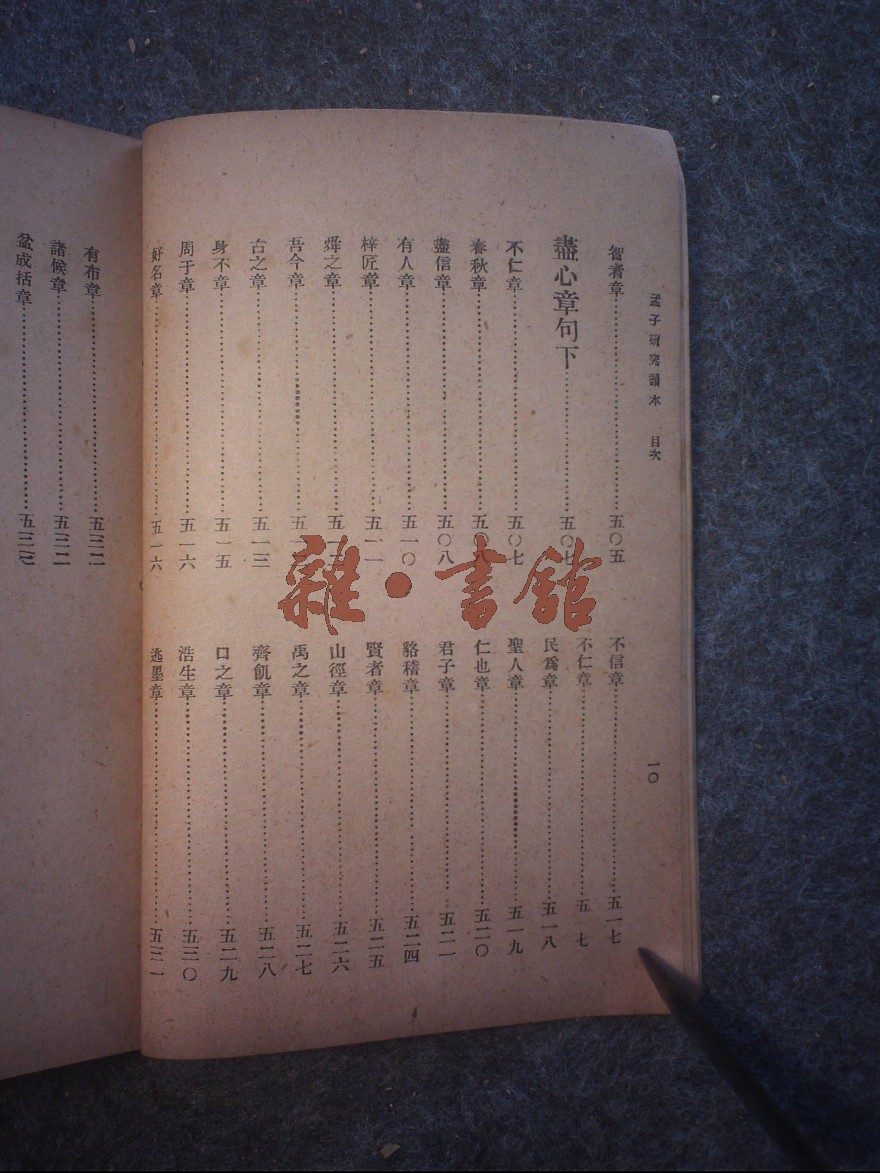 孟子研究讀本 目次 一〇
智者章 五〇五
盡心章句下 五〇七
不仁章 五〇七
春秋章 五〇八
盡信章 五〇八
有人章 五一〇
梓匠章 五一一
舜之章
吾今章
古之章 五一三
身不章 五一五
周于章 五一六
好名章 五一六
不信章 五一七
不仁章 五 七
民爲章 五一八
聖人章 五一九
仁也章 五二〇
君子章 五二一
貉稽章 五二四
賢者章 五二五
山徑章 五二六
禹之章 五二七
齊飢章 五二八
口之章 五二九
浩生章 五三〇
逃墨章 五三一
有布章 五三二
諸候章 五三二
盆成括章
雜·書館